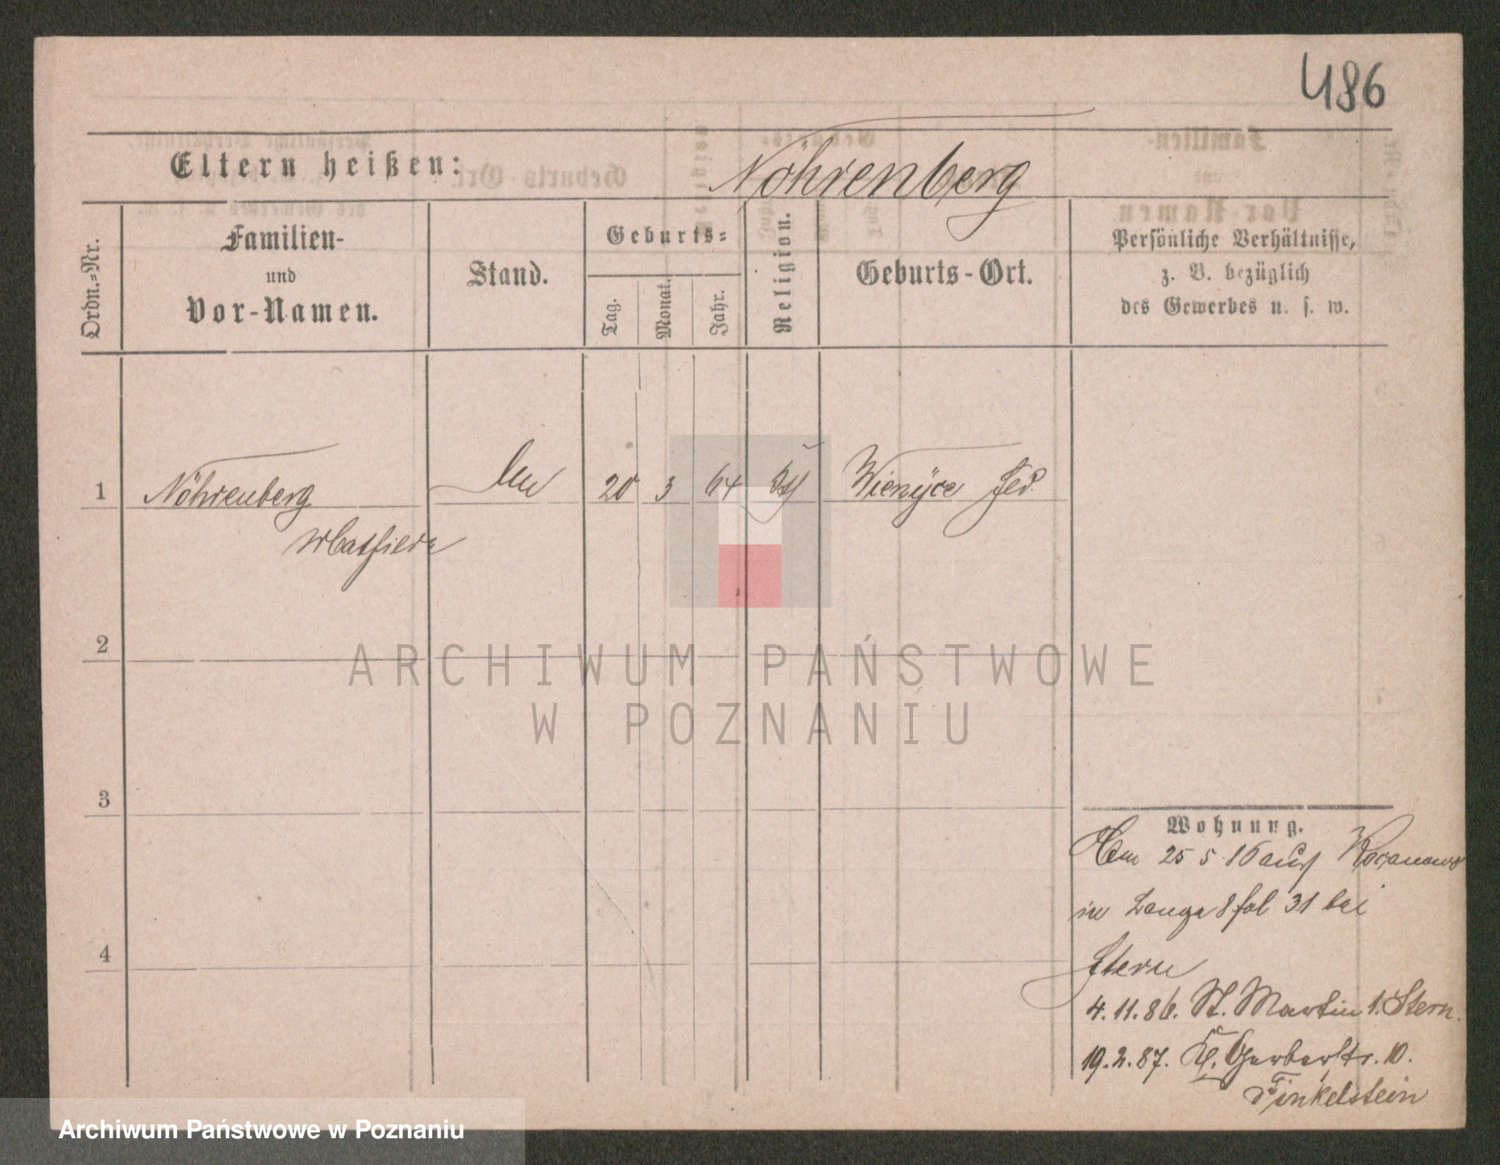 486
Eltern heißen: Nöhrenberg
Ordn.-Nr.
Familien-
und
Vor-Namen.
Stand.
Geburts-
Tag.
Monat.
Jahr.
Religion.
Geburts-Ort.
Persönliche Verhältnisse,
z. B. bezüglich
des Gewerbes u. s. w.
1 Nöhrenberg 20 3 64
2
3
4
Wohnung.
25 5 86 auf
in 8 fol 31 bei
Stern
4.11.86. St. Martin 1. Stern.
19.2.87. Kl. Gerberstr. 10.
Finkelstein
ARCHIWUM PAŃSTWOWE
W POZNANIU
Archiwum Państwowe w Poznaniu